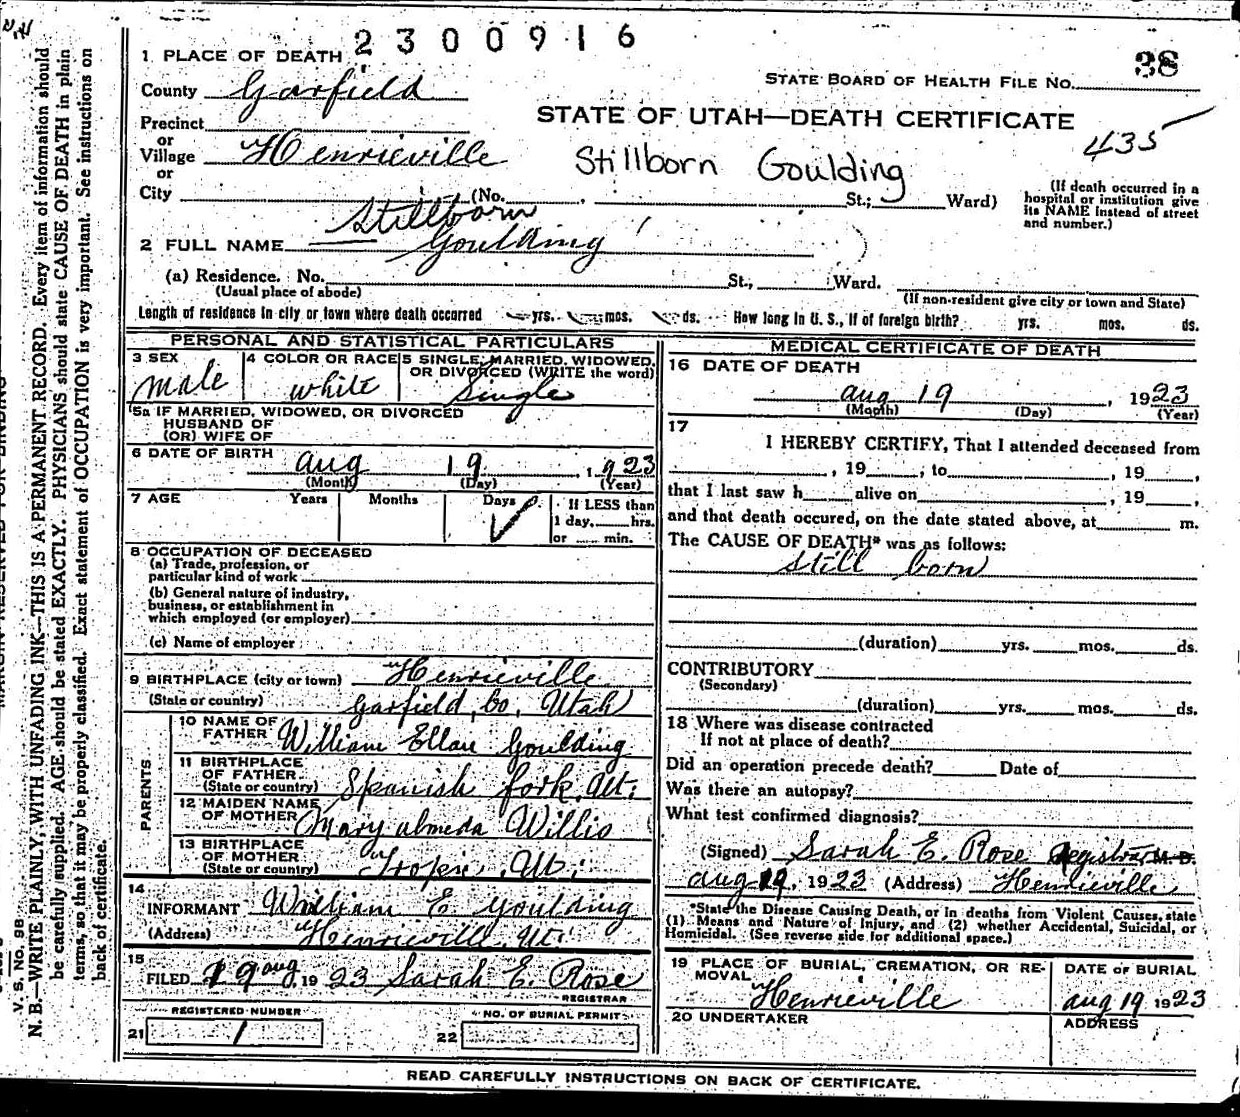 2300916
1 PLACE OF DEATH
38
STATE BOARD OF HEALTH FILE NO.
County Garfield
STATE OF UTAH—DEATH CERTIFICATE
435
Precinct
or
Village Henrieville
Stillborn Goulding
or
City (No. St.; Ward)
(If death occurred in a
hospital or institution give
its NAME instead of street
and number.)
Stillborn
2 FULL NAME Goulding
(a) Residence. No. St., Ward.
(Usual place of abode)
(If non-resident give city or town and State)
Length of residence in city or town where death occurred yrs. mos. ds. How long in U. S., if of foreign birth? yrs. mos. ds.
PERSONAL AND STATISTICAL PARTICULARS
3 SEX
male
4 COLOR OR RACE
white
5 SINGLE, MARRIED, WIDOWED,
OR DIVORCED (WRITE the word)
Single
5a IF MARRIED, WIDOWED, OR DIVORCED
HUSBAND OF
(OR) WIFE OF
6 DATE OF BIRTH
aug 19, 1923
(Month) (Day) (Year)
7 AGE Years Months Days
If LESS than
1 day, hrs.
or min.
8 OCCUPATION OF DECEASED
(a) Trade, profession, or
particular kind of work
(b) General nature of industry,
business, or establishment in
which employed (or employer)
(c) Name of employer
9 BIRTHPLACE (city or town) Henrieville
(State or country) Garfield, Co, Utah
PARENTS
10 NAME OF
FATHER William Goulding
11 BIRTHPLACE
OF FATHER
(State or country) Spanish fork, Ut.
12 MAIDEN NAME
OF MOTHER Mary almeda Willis
13 BIRTHPLACE
OF MOTHER
(State or country) Tropic, Ut.
14
INFORMANT William E Goulding
(Address) Henrieville, Ut.
15
FILED 19 aug, 1923 Sarah E. Rose
REGISTRAR
REGISTERED NUMBER
21 1
NO. OF BURIAL PERMIT
22
MEDICAL CERTIFICATE OF DEATH
16 DATE OF DEATH
aug 19, 1923
(Month) (Day) (Year)
17
I HEREBY CERTIFY, That I attended deceased from
, 19 , to , 19 ,
that I last saw h alive on , 19 ,
and that death occured, on the date stated above, at m.
The CAUSE OF DEATH* was as follows:
Still born
(duration) yrs. mos. ds.
CONTRIBUTORY
(Secondary)
(duration) yrs. mos. ds.
18 Where was disease contracted
If not at place of death?
Did an operation precede death? Date of
Was there an autopsy?
What test confirmed diagnosis?
(Signed) Sarah E. Rose Registrar M. D.
aug 19, 1923 (Address) Henrieville
*State the Disease Causing Death, or in deaths from Violent Causes, state
(1) Means and Nature of Injury, and (2) whether Accidental, Suicidal, or
Homicidal. (See reverse side for additional space.)
19 PLACE OF BURIAL, CREMATION, OR RE-
MOVAL
Henrieville
DATE OF BURIAL
aug 19 1923
20 UNDERTAKER
ADDRESS
READ CAREFULLY INSTRUCTIONS ON BACK OF CERTIFICATE.
V. S. No. 98
N. B.—WRITE PLAINLY, WITH UNFADING INK—THIS IS A PERMANENT RECORD. Every item of information should
be carefully supplied. AGE should be stated EXACTLY. PHYSICIANS should state CAUSE OF DEATH in plain
terms, so that it may be properly classified. Exact statement of OCCUPATION is very important. See instructions on
back of certificate.